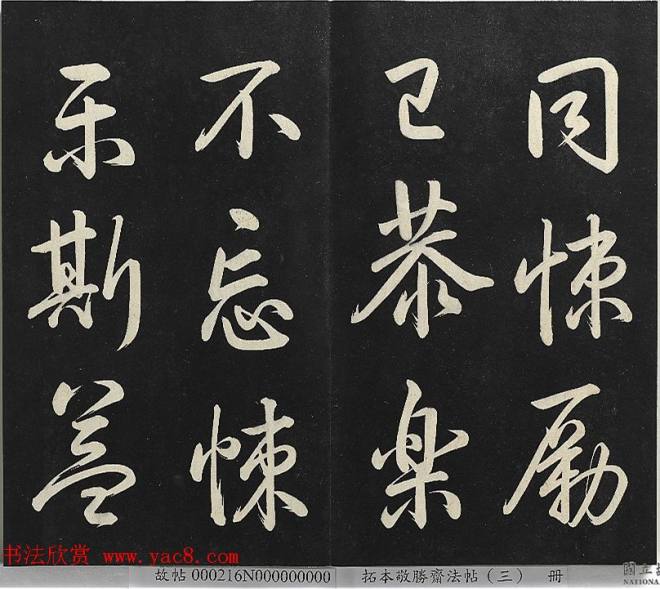 同悚勵
己恭樂
不忘悚
乐斯益
书法欣赏 www.yac8.com
故帖 000216N000000000 拓本敬勝齋法帖（三） 冊
國立
NATIONAL